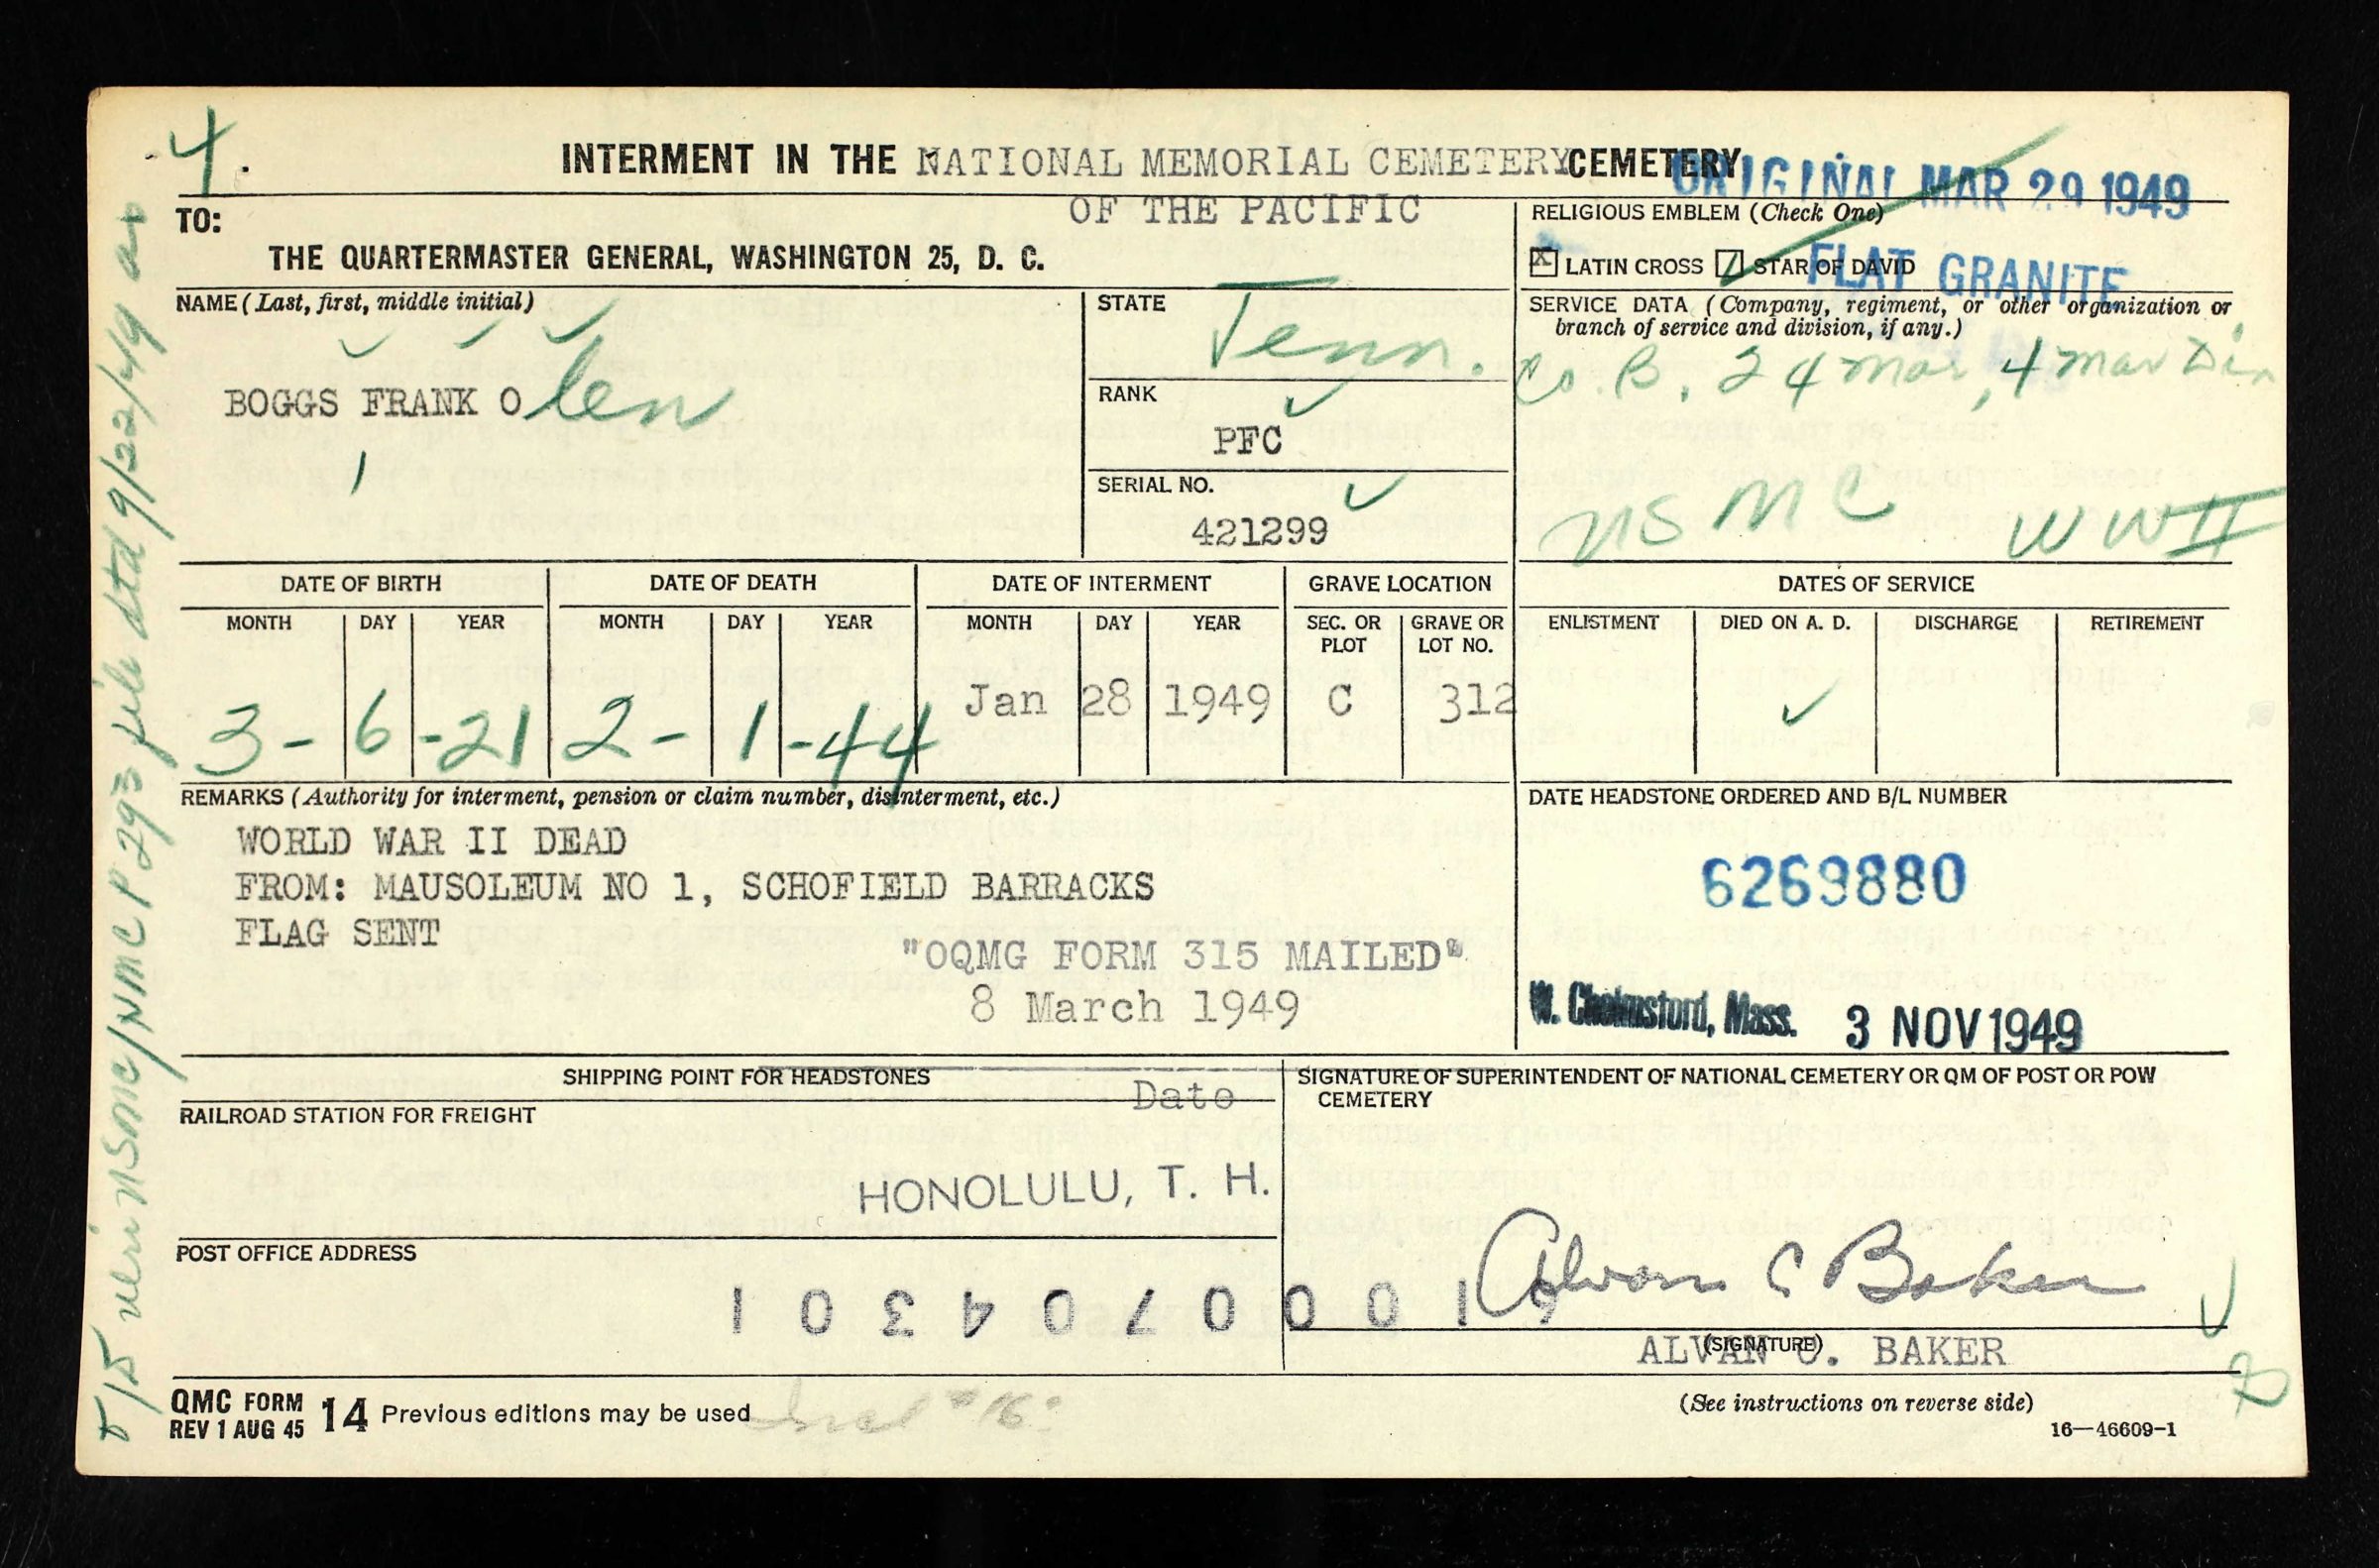 4.
INTERMENT IN THE NATIONAL MEMORIAL CEMETERY CEMETERY
OF THE PACIFIC
ORIGINAL MAR 29 1949
TO:
THE QUARTERMASTER GENERAL, WASHINGTON 25, D. C.
RELIGIOUS EMBLEM (Check One)
X LATIN CROSS STAR OF DAVID
FLAT GRANITE
NAME (Last, first, middle initial)
BOGGS FRANK Olen
STATE
Tenn.
RANK
PFC
SERIAL NO.
421299
SERVICE DATA (Company, regiment, or other organization or
branch of service and division, if any.)
Co. B, 24 Mar, 4 Mar Div
USMC WWII
DATE OF BIRTH DATE OF DEATH DATE OF INTERMENT GRAVE LOCATION DATES OF SERVICE
MONTH DAY YEAR MONTH DAY YEAR MONTH DAY YEAR SEC. OR PLOT GRAVE OR LOT NO. ENLISTMENT DIED ON A. D. DISCHARGE RETIREMENT
3 - 6 - 21 2 - 1 - 44 Jan 28 1949 C 312 ✓
REMARKS (Authority for interment, pension or claim number, disinterment, etc.)
WORLD WAR II DEAD
FROM: MAUSOLEUM NO 1, SCHOFIELD BARRACKS
FLAG SENT
"OQMG FORM 315 MAILED"
8 March 1949
DATE HEADSTONE ORDERED AND B/L NUMBER
6269880
W. Chelmsford, Mass. 3 NOV 1949
SHIPPING POINT FOR HEADSTONES
Date
RAILROAD STATION FOR FREIGHT
HONOLULU, T. H.
POST OFFICE ADDRESS
SIGNATURE OF SUPERINTENDENT OF NATIONAL CEMETERY OR QM OF POST OR POW
CEMETERY
Alvan C Baker
(SIGNATURE)
ALVAN C. BAKER
QMC FORM 14 Previous editions may be used
REV 1 AUG 45
(See instructions on reverse side)
16—46609-1
USMC/NMC P 293 file dtd 9/22/49